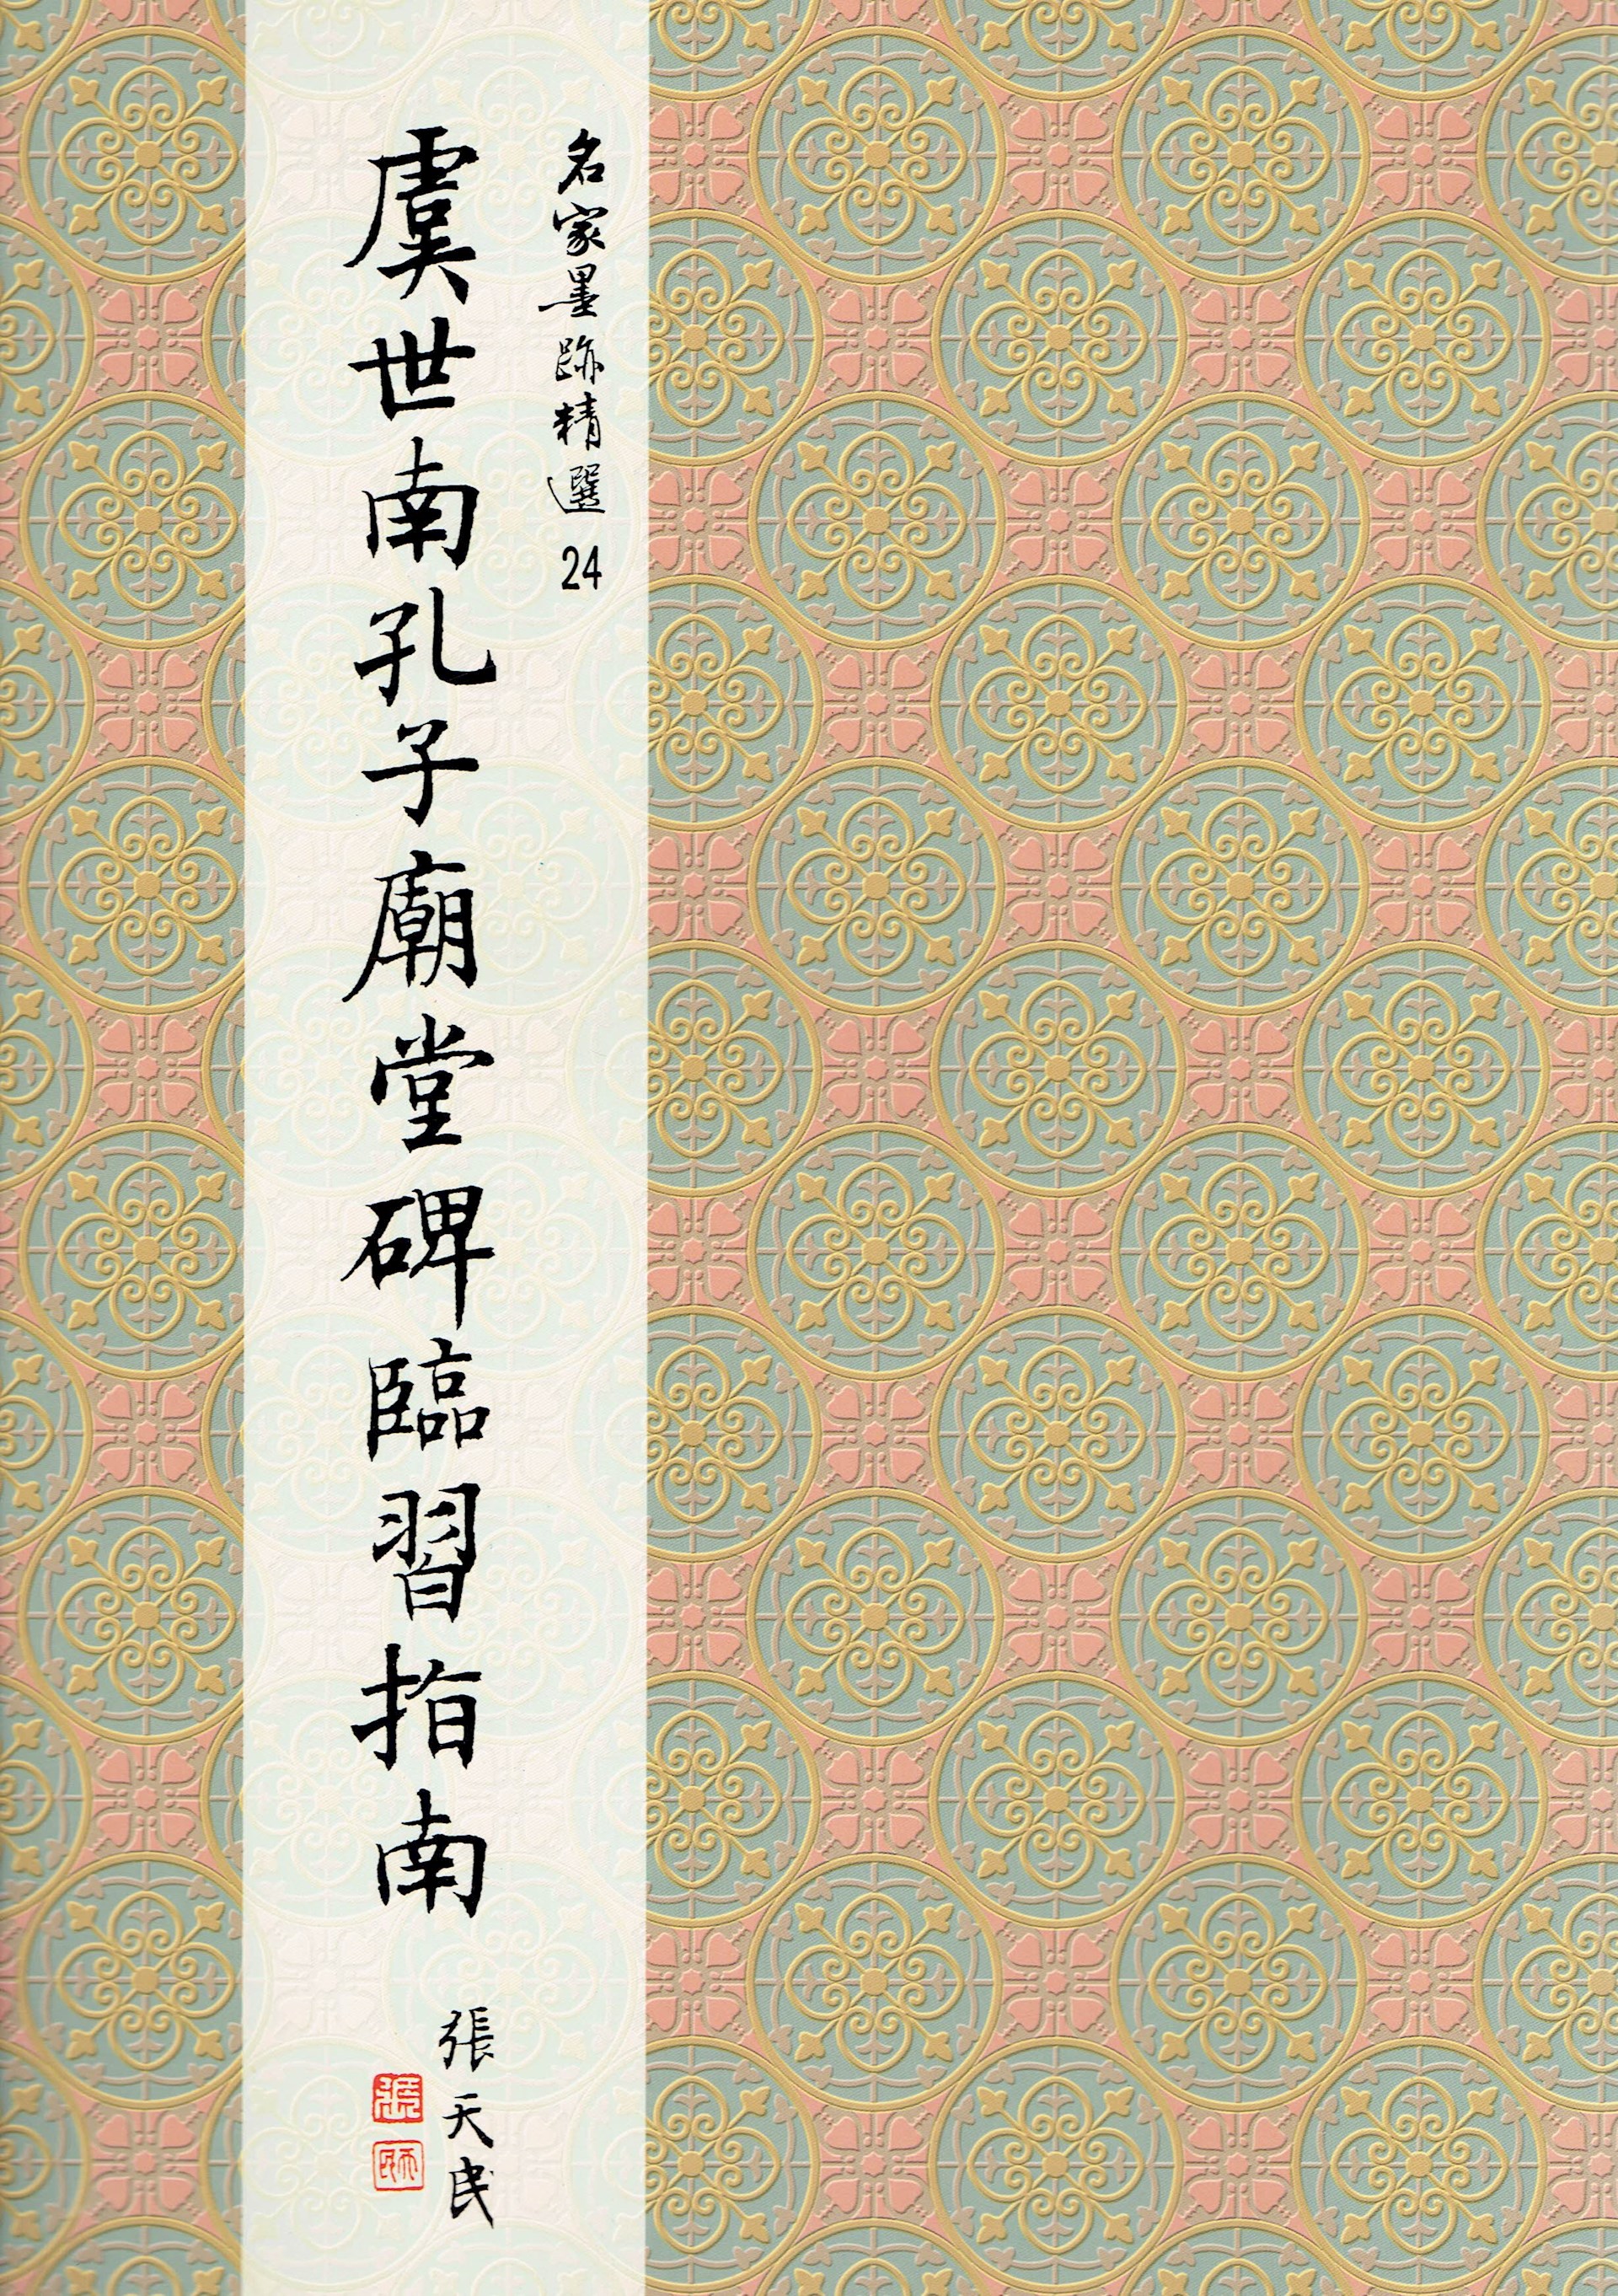 名家墨跡精選 24
虞世南孔子廟堂碑臨習指南
張天民
張